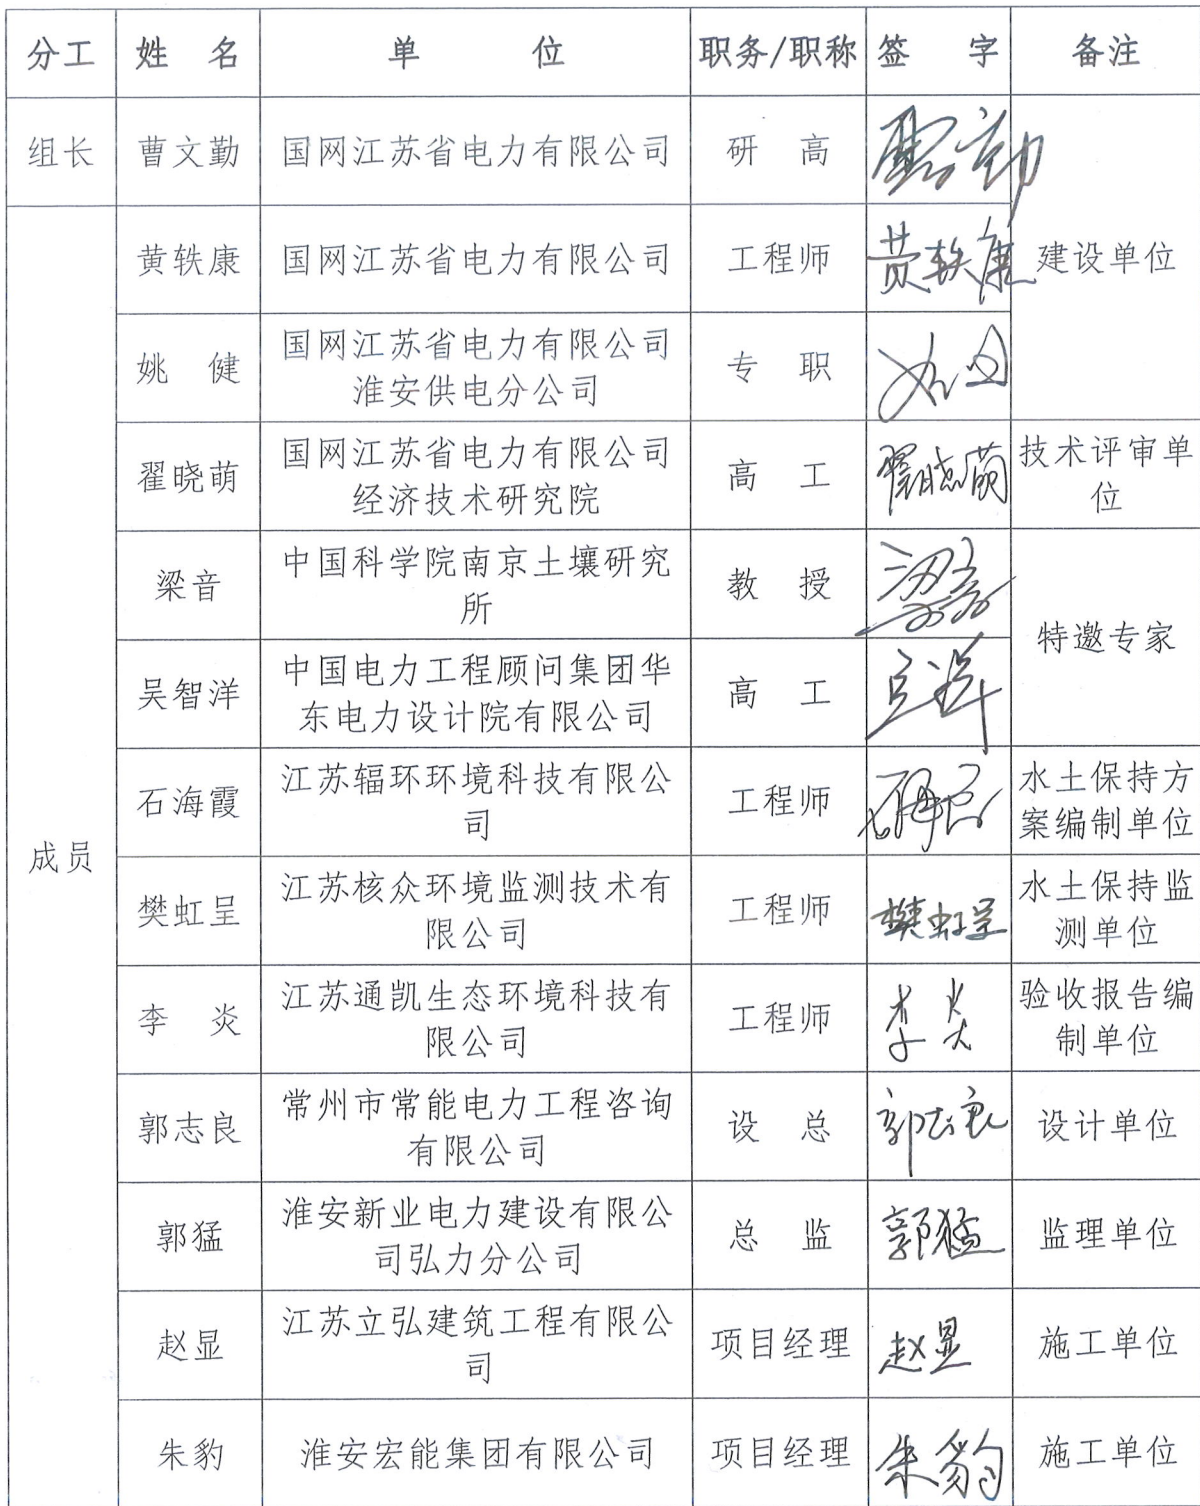 分工 姓 名 单 位 职务/职称 签 字 备注
组长 曹文勤 国网江苏省电力有限公司 研 高
黄轶康 国网江苏省电力有限公司 工程师 黄轶康 建设单位
姚 健 国网江苏省电力有限公司
淮安供电分公司 专 职
翟晓萌 国网江苏省电力有限公司
经济技术研究院 高 工 翟晓萌 技术评审单
位
梁音 中国科学院南京土壤研究
所 教 授 梁音
特邀专家
吴智洋 中国电力工程顾问集团华
东电力设计院有限公司 高 工
石海霞 江苏辐环环境科技有限公
司 工程师 水土保持方
案编制单位
成员
樊虹呈 江苏核众环境监测技术有
限公司 工程师 樊虹呈 水土保持监
测单位
李 炎 江苏通凯生态环境科技有
限公司 工程师 李炎 验收报告编
制单位
郭志良 常州市常能电力工程咨询
有限公司 设 总 郭志良 设计单位
郭猛 淮安新业电力建设有限公
司弘力分公司 总 监 郭猛 监理单位
赵显 江苏立弘建筑工程有限公
司 项目经理 赵显 施工单位
朱豹 淮安宏能集团有限公司 项目经理 朱豹 施工单位